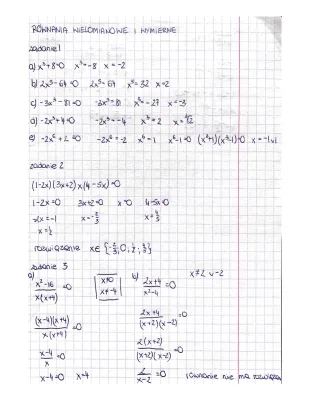 RÓWNANIA WIELOMIANOWE I WYMIERNE
zadanie 1
a) x³+8=0 x³=-8 x=-2
b) 2x⁵-64=0 2x⁵=64 x⁵=32 x=2
c) -3x³-81=0 -3x³=81 x³=-27 x=-3
d) -2x³+4=0 -2x³=-4 x³=2 x=∛2
e) -2x⁶+2=0 -2x⁶=-2 x⁶=1 x⁶-1=0 (x³+1)(x³-1)=0 x=-1 v 1
zadanie 2
(1-2x)(3x+2)x(4-5x)=0
1-2x=0 3x+2=0 x=0 4-5x=0
-2x=-1 x=-2/3 x=4/5
x=1/2
rozwiązanie x∈{-2/3, 0, 1/2, 4/5}
zadanie 3
a) x²-16/x(x+4)=0 x≠0 x≠-4 b) 2x+4/x²-4=0 x≠2 v -2
(x-4)(x+4)/x(x+4)=0 2x+4/(x+2)(x-2)=0
x-4/x=0 2(x+2)/(x+2)(x-2)=0
x-4=0 x=4 2/x-2=0 równanie nie ma